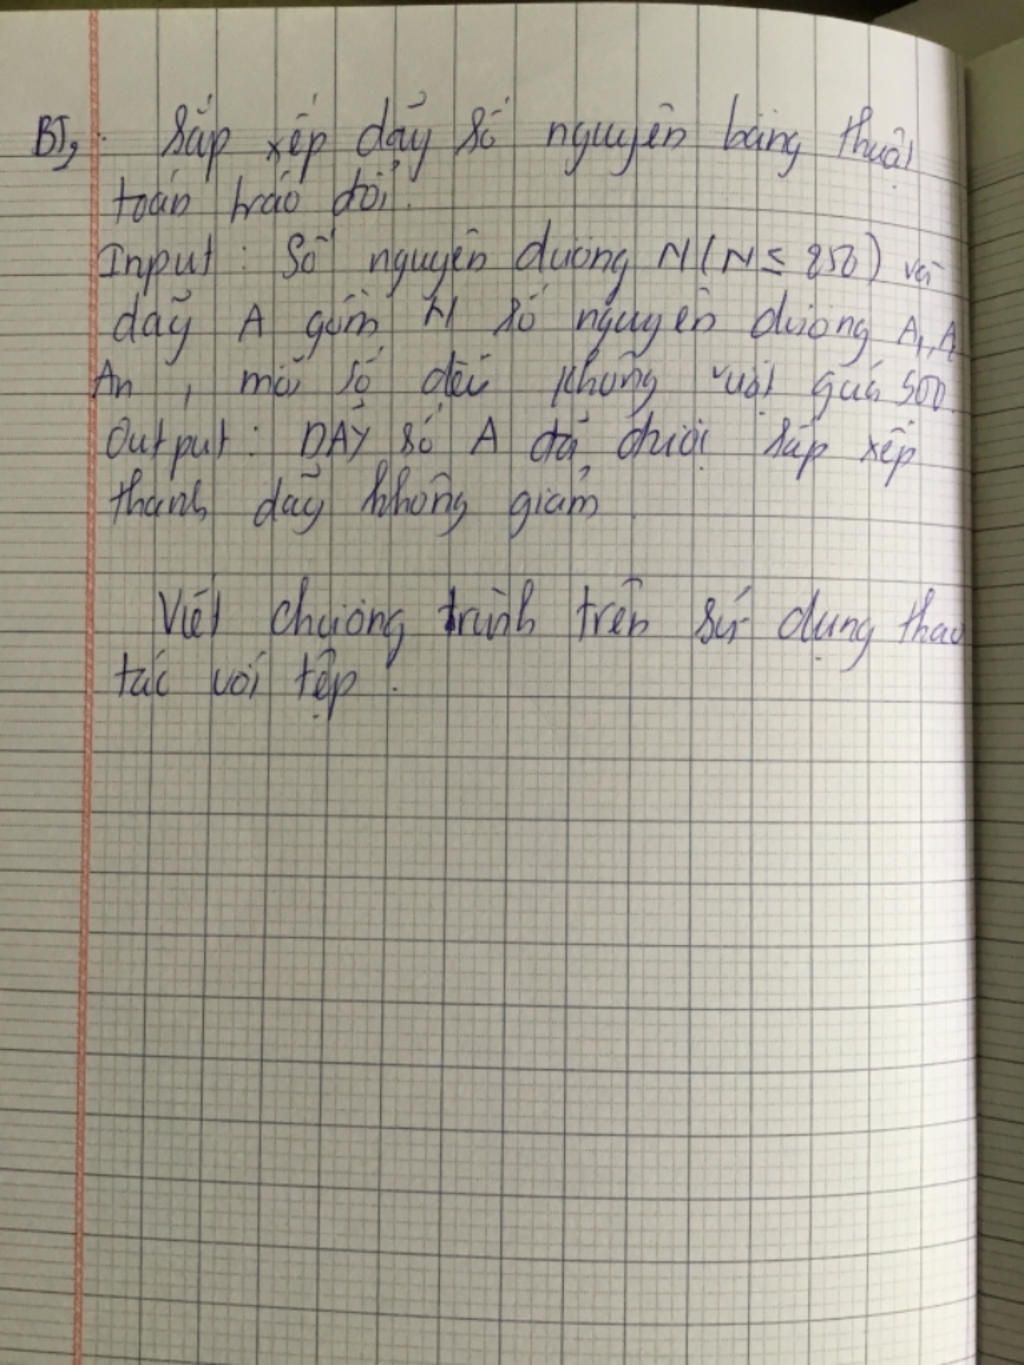 BT, : Sắp xếp dãy số nguyên bằng thuật
toán tráo đổi.
Input : Số nguyên dương N (N ≤ 250) và
dãy A gồm N số nguyên dương A1, A2
An , mỗi số đều không vượt quá 500.
Output : DÃY số A đã được sắp xếp
thành dãy không giảm.
Viết chương trình trên sử dụng thao
tác với tệp.